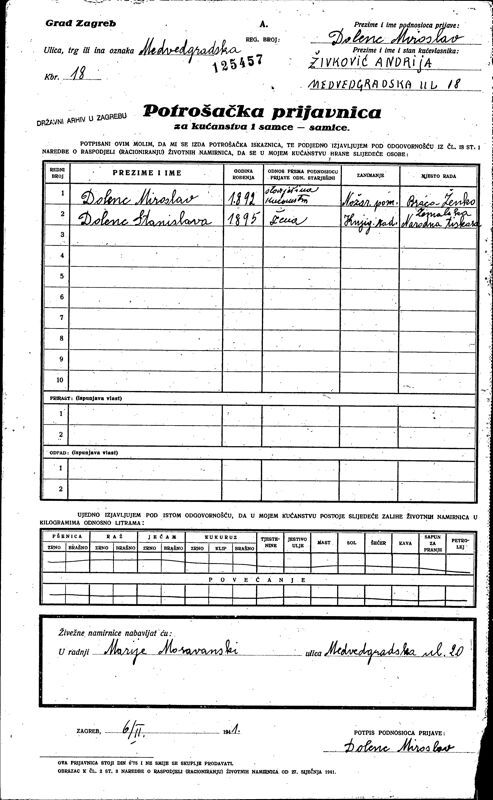 Grad Zagreb
A.
REG. BROJ:
Prezime i ime podnosioca prijave:
Dolenc Miroslav
Ulica, trg ili ina oznaka Medvedgradska
125457
Prezime i ime i stan kućevlasnika:
ŽIVKOVIĆ ANDRIJA
Kbr. 18
MEDVEDGRADSKA UL 18
DRŽAVNI ARHIV U ZAGREBU
Potrošačka prijavnica
za kućanstva i samce — samice.
POTPISANI OVIM MOLIM, DA MI SE IZDA POTROŠAČKA ISKAZNICA, TE PODJEDNO IZJAVLJUJEM POD ODGOVORNOŠĆU IZ ČL. 18 ST. 1
NAREDBE O RASPODJELI (RACIONIRANJU) ŽIVOTNIH NAMIRNICA, DA SE U MOJEM KUĆANSTVU HRANE SLIJEDEĆE OSOBE:
REDNI BROJ PREZIME I IME GODINA ROĐENJA ODNOS PREMA PODNOSIOCU PRIJAVE ODN. STARJEŠINI ZANIMANJE MJESTO RADA
1 Dolenc Miroslav 1892 starješina kućanstva Nožar. pom. Braća Ženko
2 Dolenc Stanislava 1895 žena Knjig. rad. Narodna Tiskara
3
4
5
6
7
8
9
10
PRIRAST: (ispunjava vlast)
1
2
ODPAD: (ispunjava vlast)
1
2
UJEDNO IZJAVLJUJEM POD ISTOM ODGOVORNOŠĆU, DA U MOJEM KUĆANSTVU POSTOJE SLIJEDEĆE ZALIHE ŽIVOTNIH NAMIRNICA U
KILOGRAMIMA ODNOSNO LITRAMA:
PŠENICA RAŽ JEČAM KUKURUZ TJESTENINE JESTIVO ULJE MAST SOL ŠEĆER KAVA SAPUN ZA PRANJE PETROLEJ
ZRNO BRAŠNO ZRNO BRAŠNO ZRNO BRAŠNO ZRNO KLIP BRAŠNO
POVEĆANJE
Živežne namirnice nabavljat ću:
U radnji Marije Moravanski ulica Medvedgradska ul. 20
ZAGREB, 6/II. 1941.
POTPIS PODNOSIOCA PRIJAVE:
Dolenc Miroslav
OVA PRIJAVNICA STOJI DIN 0'75 I NE SMIJE SE SKUPLJE PRODAVATI.
OBRAZAC K ČL. 2 ST. 2 NAREDBE O RASPODJELI (RACIONIRANJU) ŽIVOTNIH NAMIRNICA OD 27. SIJEČNJA 1941.